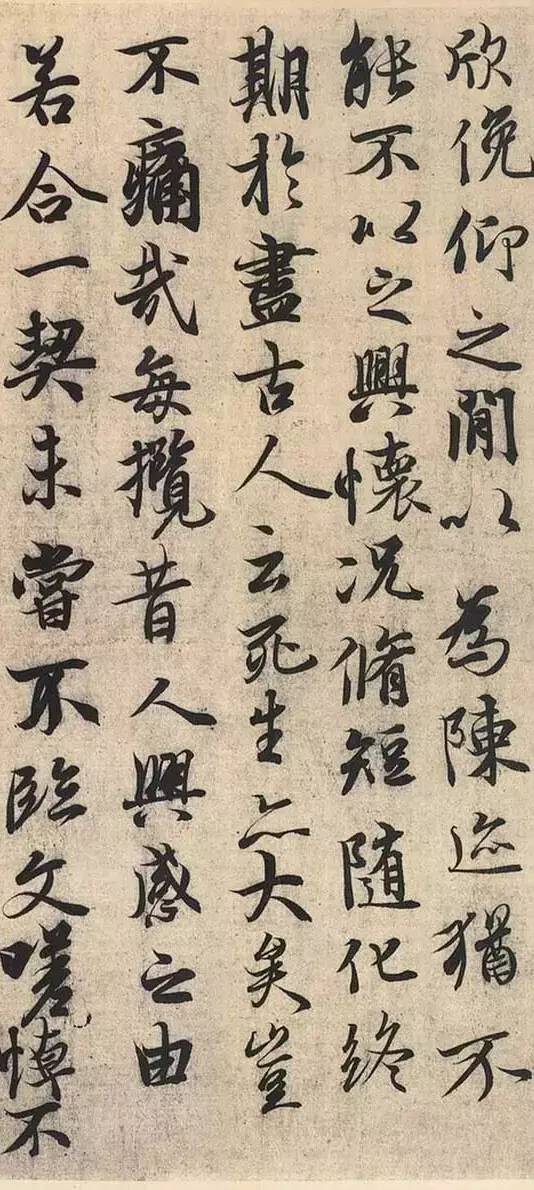 欣俛仰之閒以為陳迹猶不
能不以之興懷況脩短隨化終
期於盡古人云死生亦大矣豈
不痛哉每攬昔人興感之由
若合一契未嘗不臨文嗟悼不